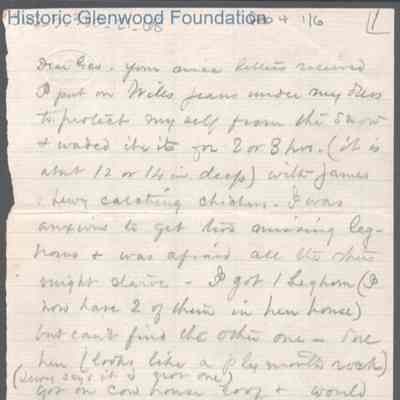 Historic Glenwood Foundation
1
Dear Geo. Your nice letters received
I put on Will's jeans under my dress
to protect my self from the snow
& waded in it for 2 or 3 hrs. (it is
abt 12 or 14 in. deep) with James
Lewy catching chickens. I was
anxious to get two missing leg-
horns & was afraid all the others
might starve - I got 1 Leghorn (I
now have 2 of them in hen house)
but can't find the other one - One
hen (looks like a Plymouth rock)
(Lewy says it is your one)
got on cow house roof & would